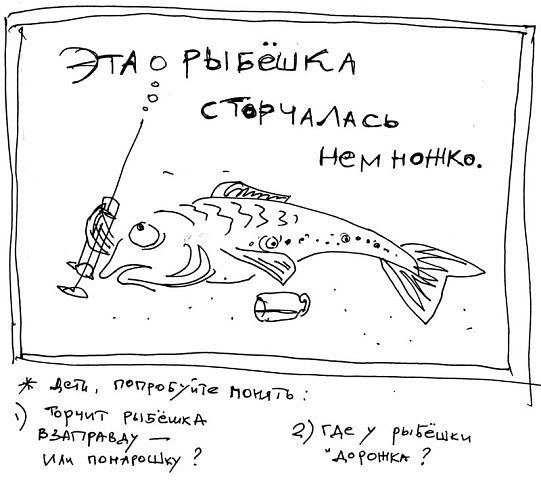 ЭТА РЫБЁШКА
СТОРЧАЛАСЬ
НЕМНОЖКО.
* Дети, попробуйте понять:
1) Торчит рыбёшка
взаправду —
или понарошку?
2) Где у рыбёшки
"дорожка?